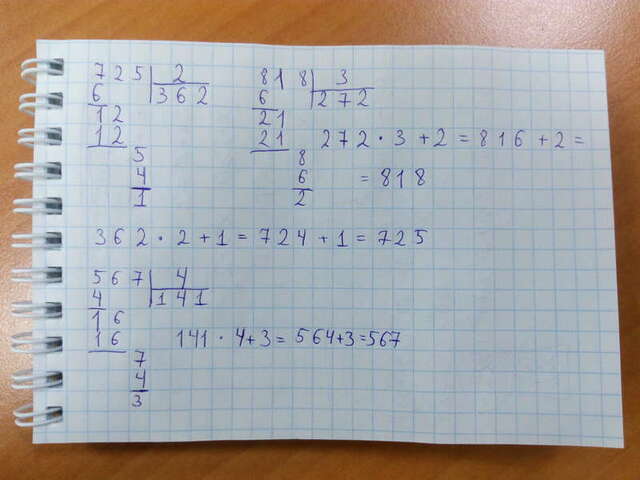 725 | 2
6 | 362
12
12
5
4
1
818 | 3
6 | 272
21
21
8
6
2
272 · 3 + 2 = 816 + 2 =
= 818
362 · 2 + 1 = 724 + 1 = 725
567 | 4
4 | 141
16
16
7
4
3
141 · 4 + 3 = 564 + 3 = 567